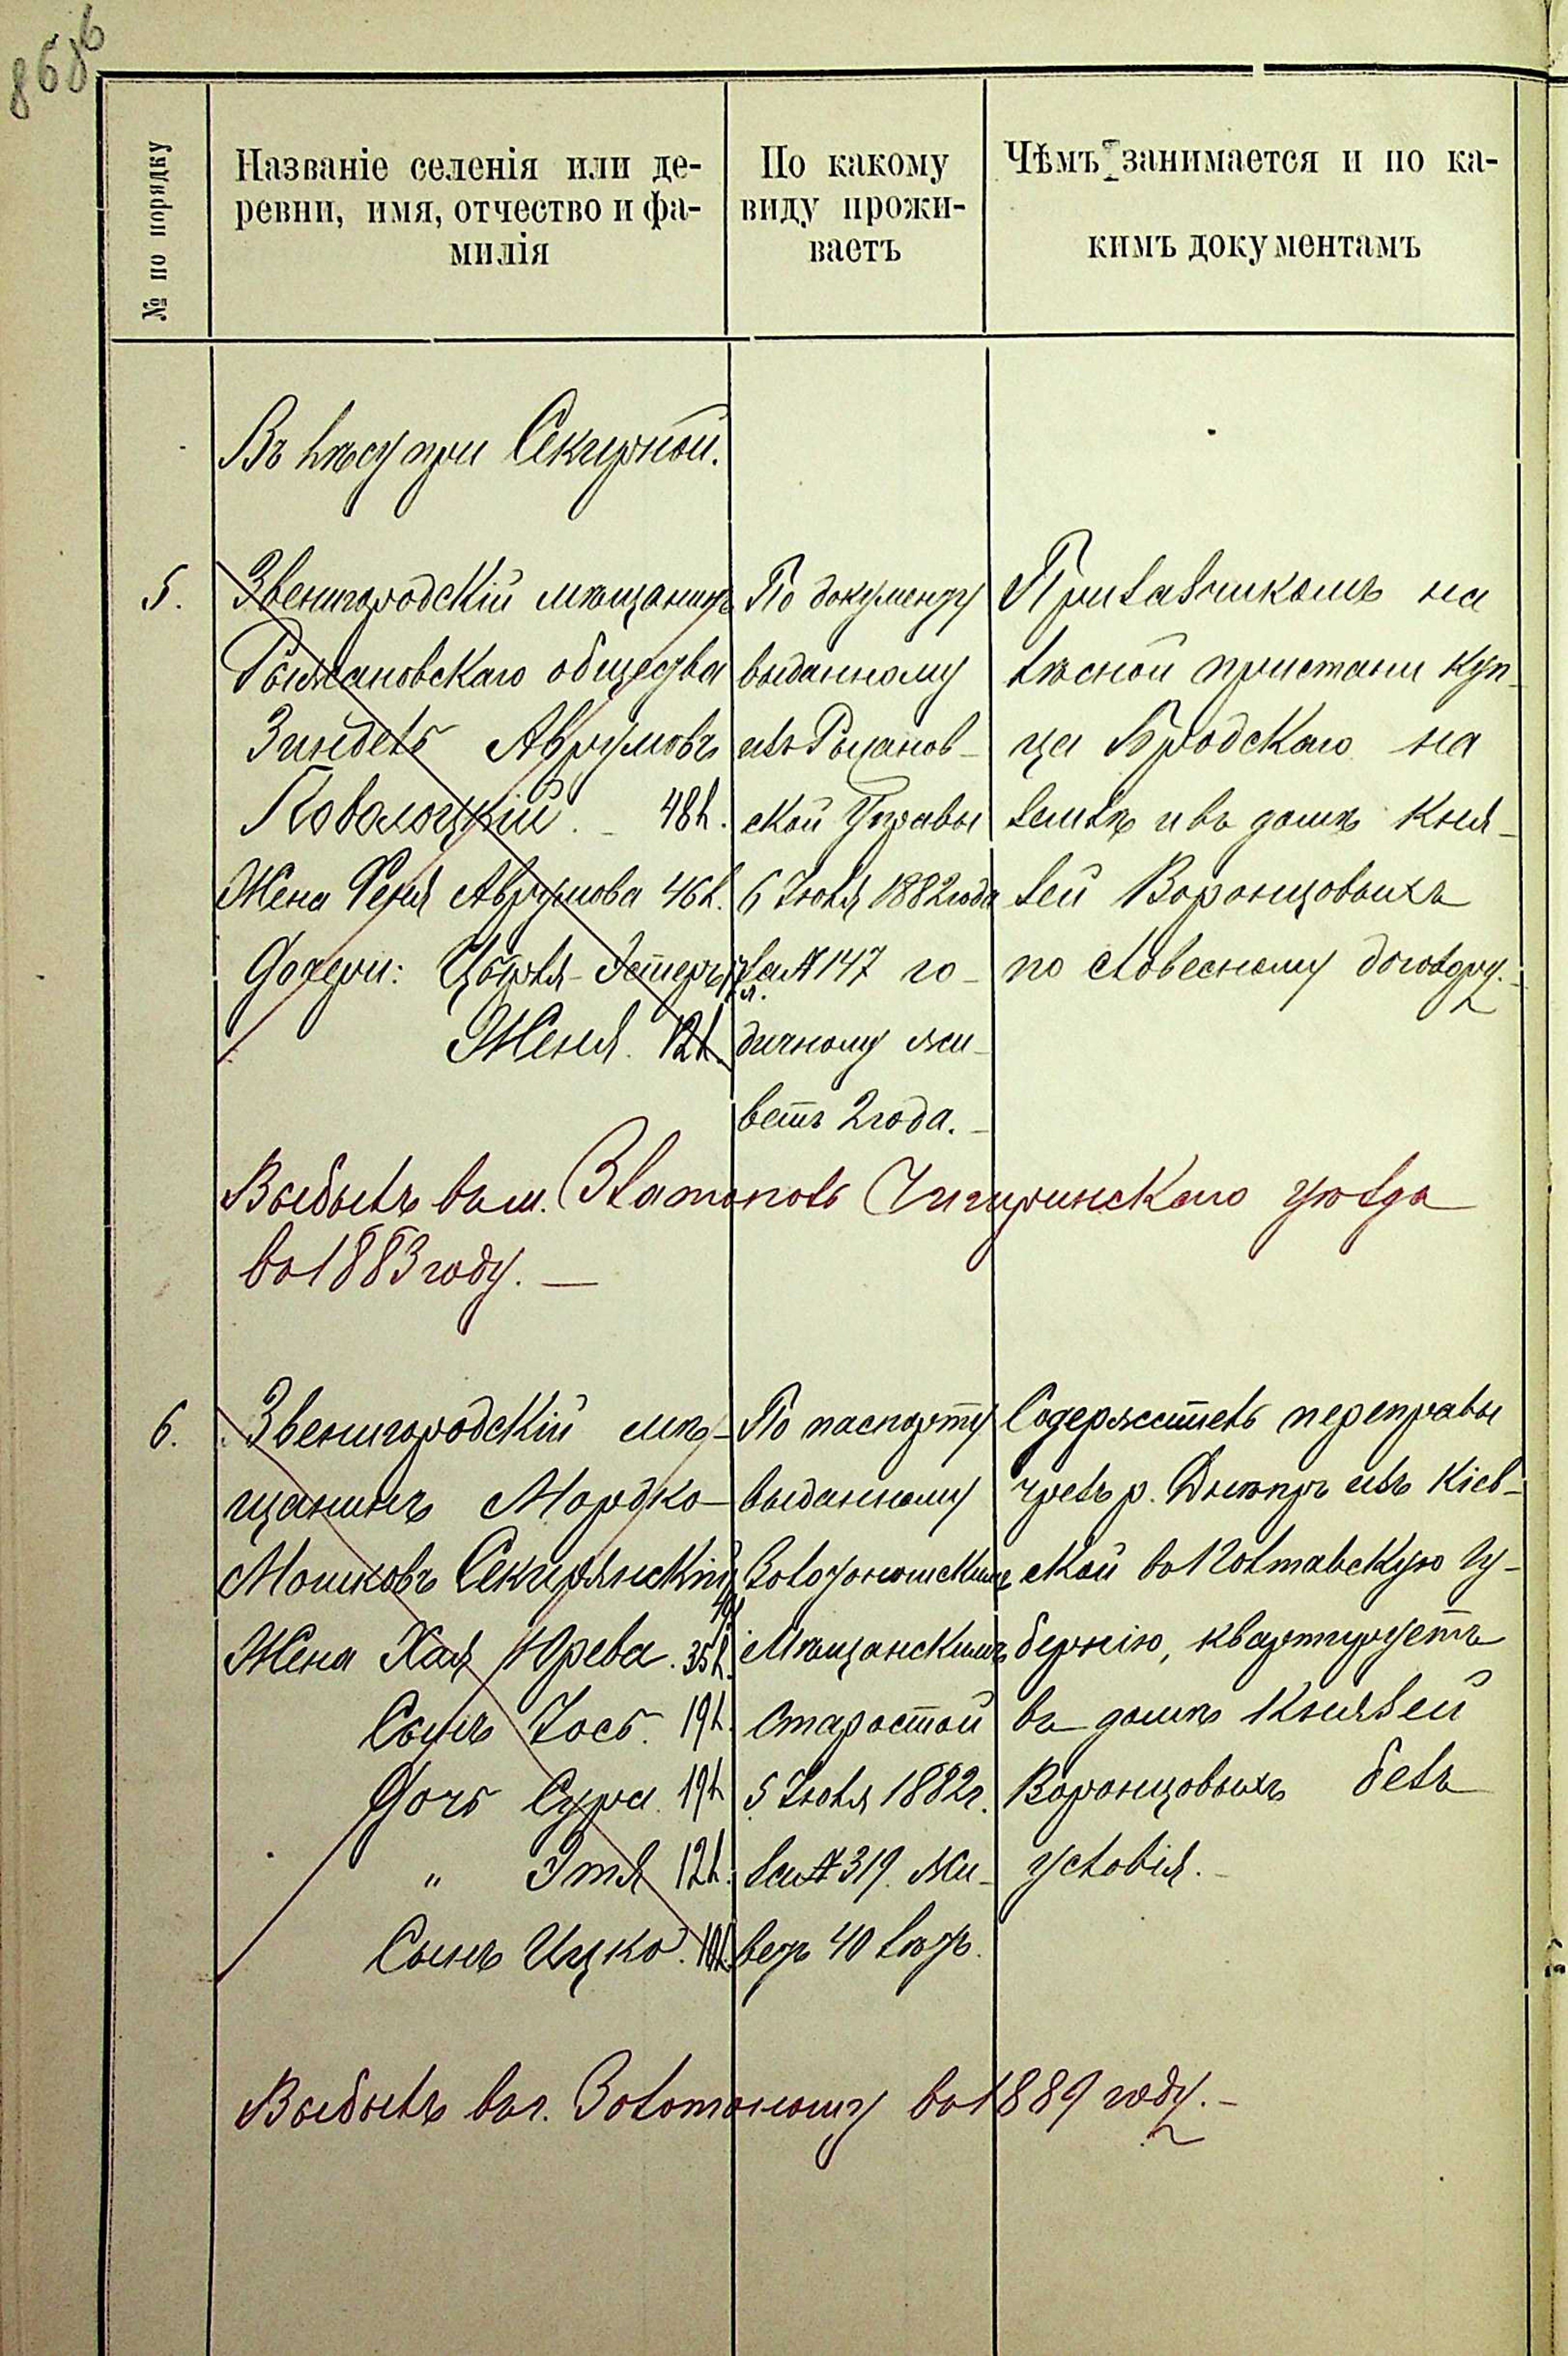 868б
№ по порядку
Названіе селенія или де-
ревни, имя, отчество и фа-
милія
По какому
виду прожи-
ваетъ
Чѣмъ занимается и по ка-
кимъ документамъ
Въ лѣсу при Секирной.
5.
Звенигородскій мѣщанинъ
Рыжановскаго общества
Зиндель Аврумовъ
Поволоцкій. - 48 л.
Жена Феня Аврумова 46 л.
Дочери: Цырля-Эстеръ
Женя. 12 л.
По документу
выданному
изъ Рыжанов-
ской Управы
6 Іюля 1882 года
за № 147 го-
дичному жи-
ветъ 2 года. -
Прикащикомъ на
лѣсной пристани куп-
ца Бродскаго на
землѣ и въ домѣ Кня-
зей Воронцовыхъ
по словесному договору. -
Выбылъ въ м. Златополь Чигиринскаго уѣзда
въ 1883 году. —
6.
Звенигородскій мѣ-
щанинъ Мордко
Мошковъ Секирянскій
49 л
Жена Хая Юрева. 35 л.
Сынъ Іось. 19 л.
Дочь Сура. 19 л
" Этя 12 л.
Сынъ Ицко. 10 л.
По паспорту
выданному
Золотоношскимъ
Мѣщанскимъ
Старостой
5 Іюля 1882 г.
за № 319. Жи-
ветъ 40 лѣтъ.
Содержитель переправы
чрезъ р. Днѣпръ изъ Кіев-
ской въ Полтавскую Гу-
бернію, квартируетъ
въ домѣ Князей
Воронцовыхъ безъ
условія. -
Выбылъ въ г. Золотоношу въ 1889 году. -